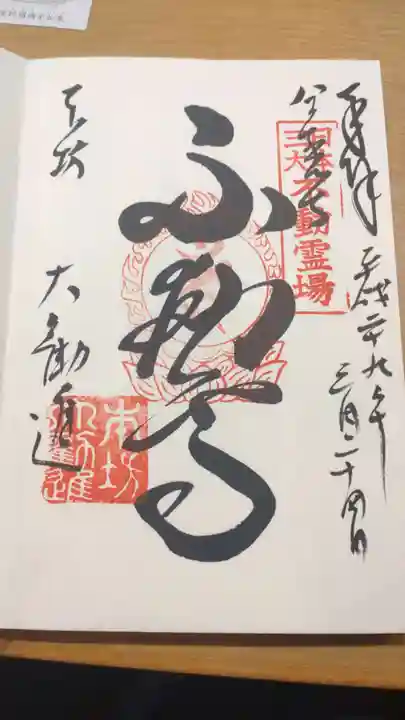 奉拝
平成二十九年
三月二十四日
日本
三大
不動霊場
不動尊
大勧進
本坊
大勧進